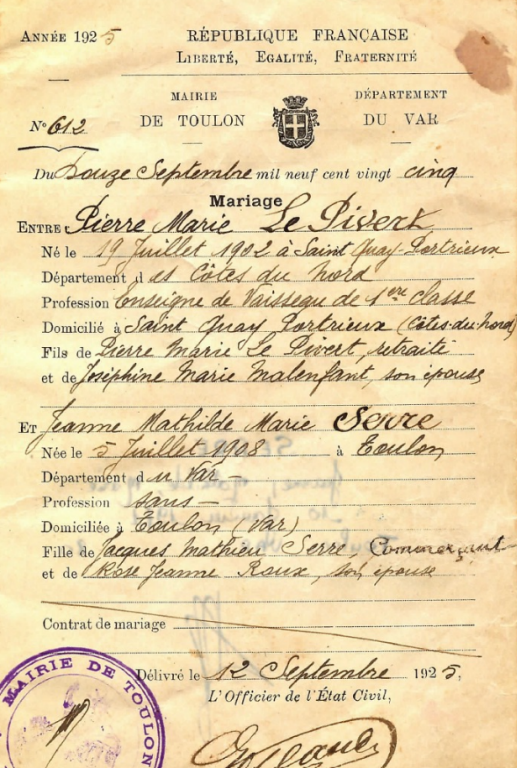 ANNÉE 1925
RÉPUBLIQUE FRANÇAISE
LIBERTÉ, EGALITÉ, FRATERNITÉ
MAIRIE
DE TOULON
DÉPARTEMENT
DU VAR
No 612
Du Douze Septembre mil neuf cent vingt cinq
Mariage
ENTRE Pierre Marie Le Pivert
Né le 19 Juillet 1902 à Saint Quay-Portrieux
Département des Côtes du Nord
Profession Enseigne de Vaisseau de 1ère classe
Domicilié à Saint Quay Portrieux (Côtes-du-Nord)
Fils de Pierre Marie Le Pivert, retraité
et de Joséphine Marie Malenfant, son épouse
ET Jeanne Mathilde Marie Serre
Née le 5 Juillet 1908 à Toulon
Département du Var —
Profession sans —
Domiciliée à Toulon (Var)
Fille de Jacques Mathieu Serre, Commerçant
et de Rose Jeanne Roux, son épouse
Contrat de mariage
Délivré le 12 Septembre 1925,
L'Officier de l'État Civil,
MAIRIE DE TOULON